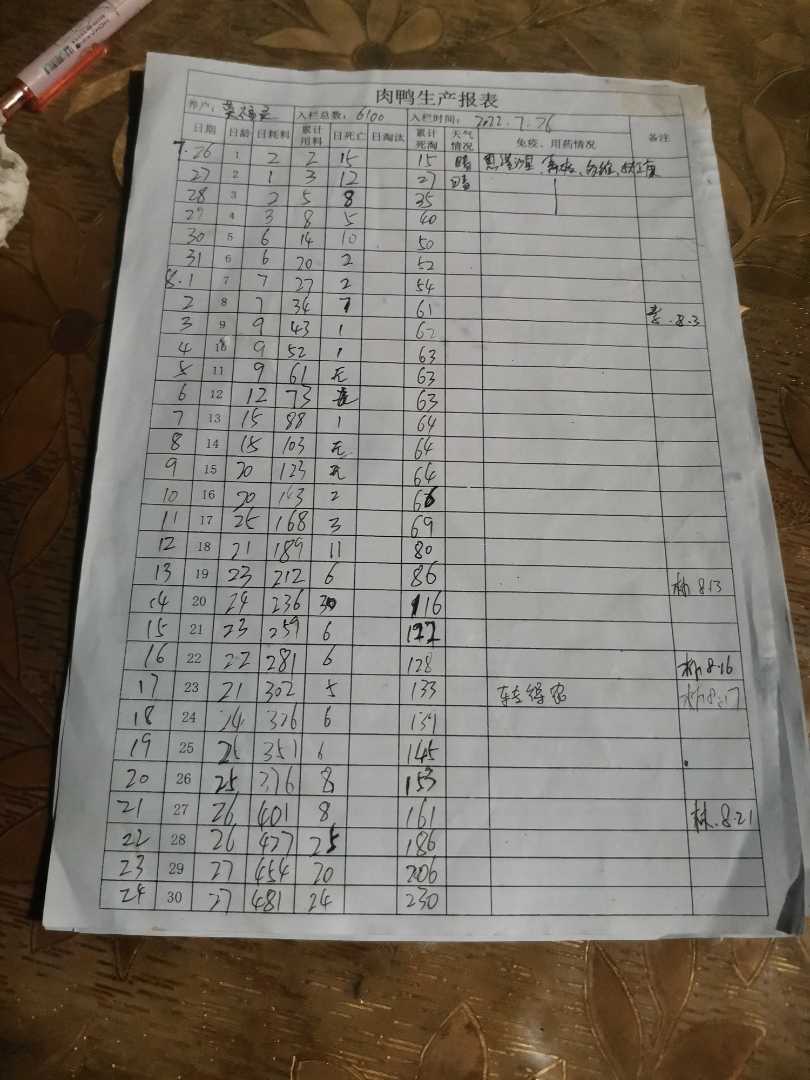 肉鸭生产报表
养户： 入栏总数：6100 入栏时间：2022.7.26
日期 日龄 日耗料 累计用料 日死亡 日淘汰 累计死淘 天气情况 免疫、用药情况 备注
7.26 1 2 2 15 15 晴
27 2 1 3 12 27 晴
28 3 2 5 8 35
29 4 3 8 5 40
30 5 6 14 10 50
31 6 6 20 2 52
8.1 7 7 27 2 54
2 8 7 34 7 61
3 9 9 43 1 62 8.3
4 10 9 52 1 63
5 11 9 61 无 63
6 12 12 73 无 63
7 13 15 88 1 64
8 14 15 103 无 64
9 15 20 123 无 64
10 16 20 143 2 66
11 17 25 168 3 69
12 18 21 189 11 80
13 19 23 212 6 86 林 8.13
14 20 24 236 30 116
15 21 23 259 6 122
16 22 22 281 6 128 林 8.16
17 23 21 302 5 133 林 8.17
18 24 24 326 6 139
19 25 25 351 6 145
20 26 25 376 8 153
21 27 26 401 8 161 林.8.21
22 28 26 427 25 186
23 29 27 454 20 206
24 30 27 481 24 230